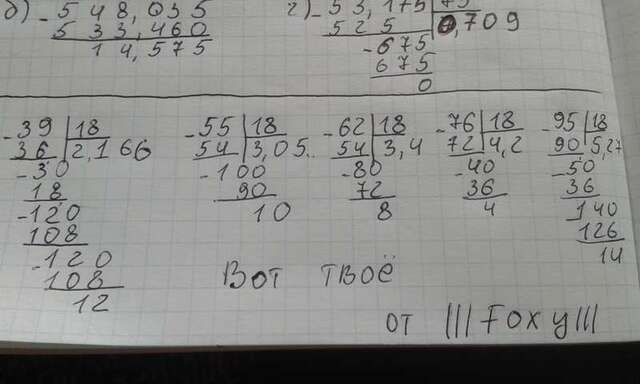 б) - 548,035 г) - 53,175 | 75
533,460 525 0,709
14,575 - 675
675
0
- 39 | 18 - 55 | 18 - 62 | 18 - 76 | 18 - 95 | 18
36 2,166 54 3,05.. 54 3,4 72 4,2 90 5,27
- 30 - 100 - 80 - 40 - 50
18 90 72 36 36
- 120 10 8 4 - 140
108 126
- 120 14
108
12
Вот твоё
от |||Foxy|||